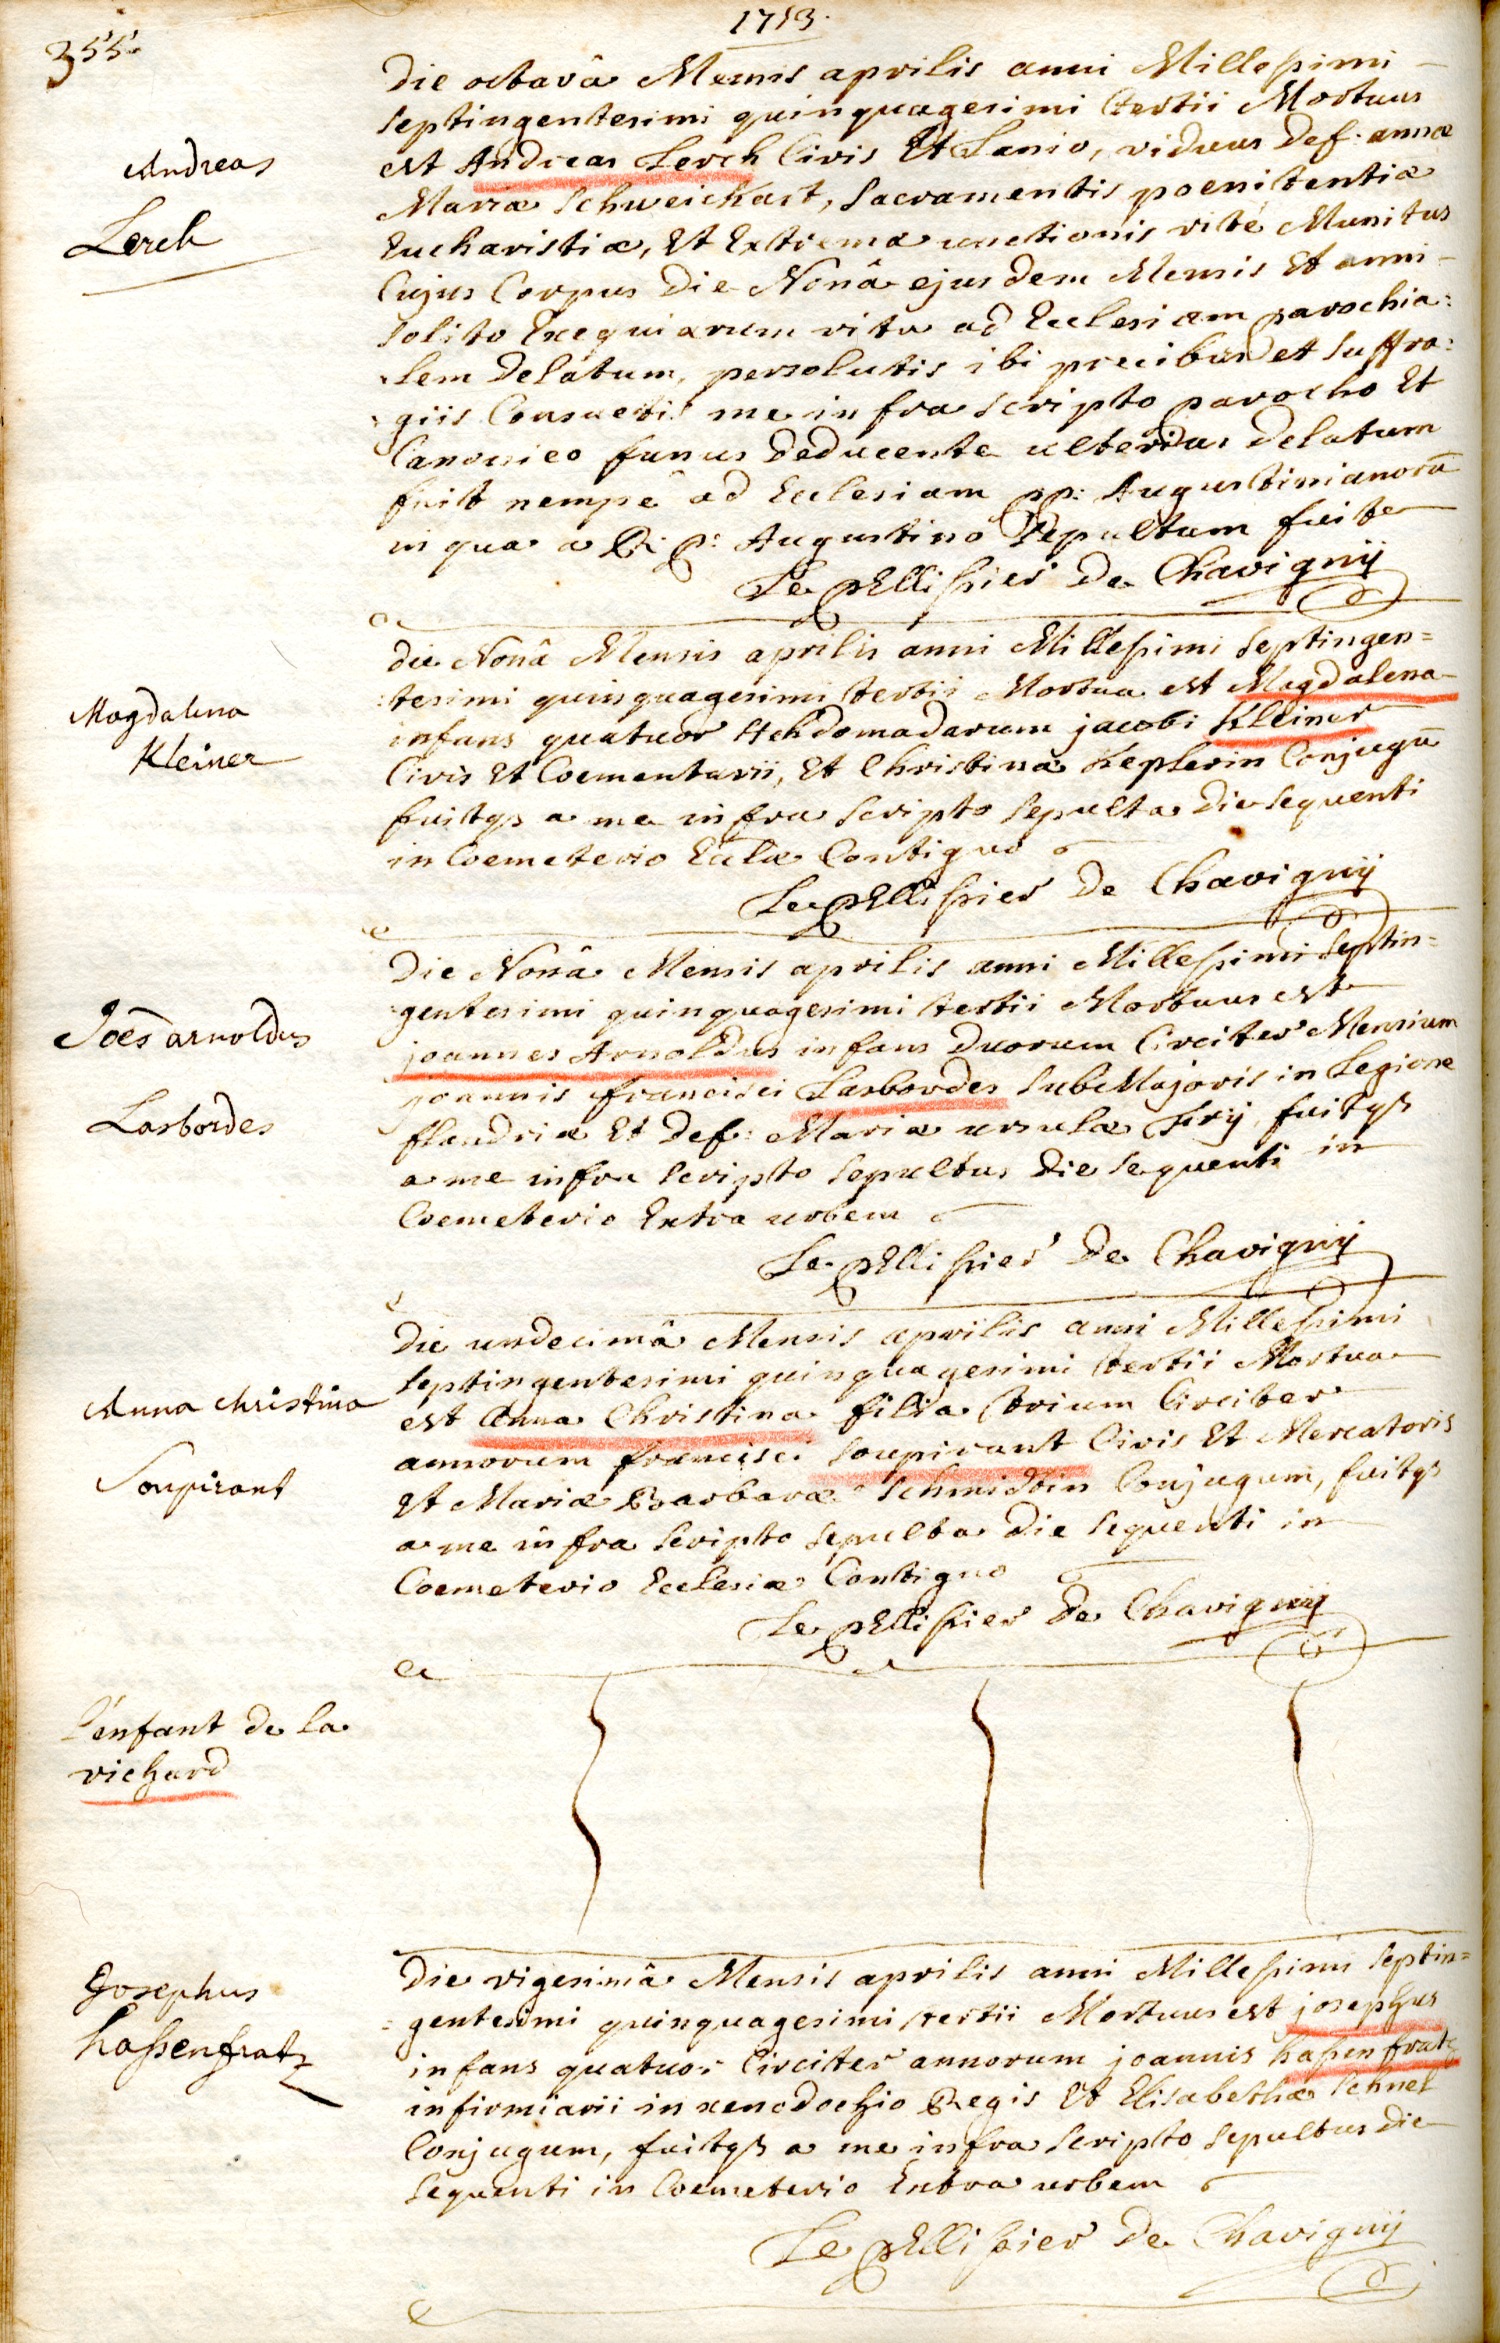 1753.
355.
Andreas
Lerch
Die octavâ Mensis aprilis anni Millesimi
septingentesimi quinquagesimi tertii Mortuus
est Andreas Lerch Civis Et Lanio, viduus Def: annæ
Mariæ Schweickart, Sacramentis poenitentiæ
Eucharistiæ, Et Extremæ unctionis rité Munitus
Cujus Corpus Die Nonâ ejusdem Mensis Et anni
solito Exequiarum ritu ad Ecclesiam parochia:
:lem Delatum, persolutis ibi precibus et Suffra:
:giis Consuetis me infra scripto parocho Et
Canonico funus Deducente ulterius Delatum
fuit nempe ad Ecclesiam pp: Augustinianorū
in qua a R: P: Augustino Sepultum fuit
Le pEllissier De Chavignÿ
Magdalena
Kleiner
Die Nonâ Mensis aprilis anni Millesimi Septingen=
:tesimi quinquagesimi tertii Mortua est Magdalena
infans quatuor Hebdomadarum jacobi Kleiner
Civis Et Coementarii, Et Christinæ Keplerin Conjugū
fuitqs a me infra scripto Sepulta Die sequenti
in Coemeterio Eccliæ Contiguo
Le pEllissier De Chavignÿ
Joēs arnoldus
Lasbordes
Die Nonâ Mensis aprilis anni Millesimi Septin=
:gentesimi quinquagesimi tertii Mortuus est
joannes Arnoldus infans Duorum Circiter Mensium
joannis francisci Lasbordes SubMajoris in Legione
flandriæ Et Def: Mariæ ursulæ fuitqs
a me infra scripto Sepultus Die sequenti in
Coemeterio Extra urbem
Le pEllissier De Chavignÿ
Anna christina
Soupirant
Die undecimâ Mensis aprilis anni Millesimi
Septingentesimi quinquagesimi tertii Mortua
est Anna Christina filia trium Circiter
annorum francisci Soupirant Civis Et Mercatoris
Et Mariæ Barbaræ Schmidtin Conjugum, fuitqs
a me infra scripto Sepulta Die sequenti in
Coemeterio Ecclesiæ Contiguo
Le pEllissier De Chavignÿ
l'enfant de la
richard
Josephus
hassenfratz
Die vigesimâ Mensis aprilis anni Millesimi Septin=
=gentesimi quinquagesimi tertii Mortuus est josephus
infans quatuor Circiter annorum joannis hassenfratz
infirmiarii in xenodochio Regis Et Elisabethæ Schnel
Conjugum, fuitqs a me infra scripto Sepultus Die
Sequenti in Coemeterio Extra urbem
Le pEllissier De Chavignÿ